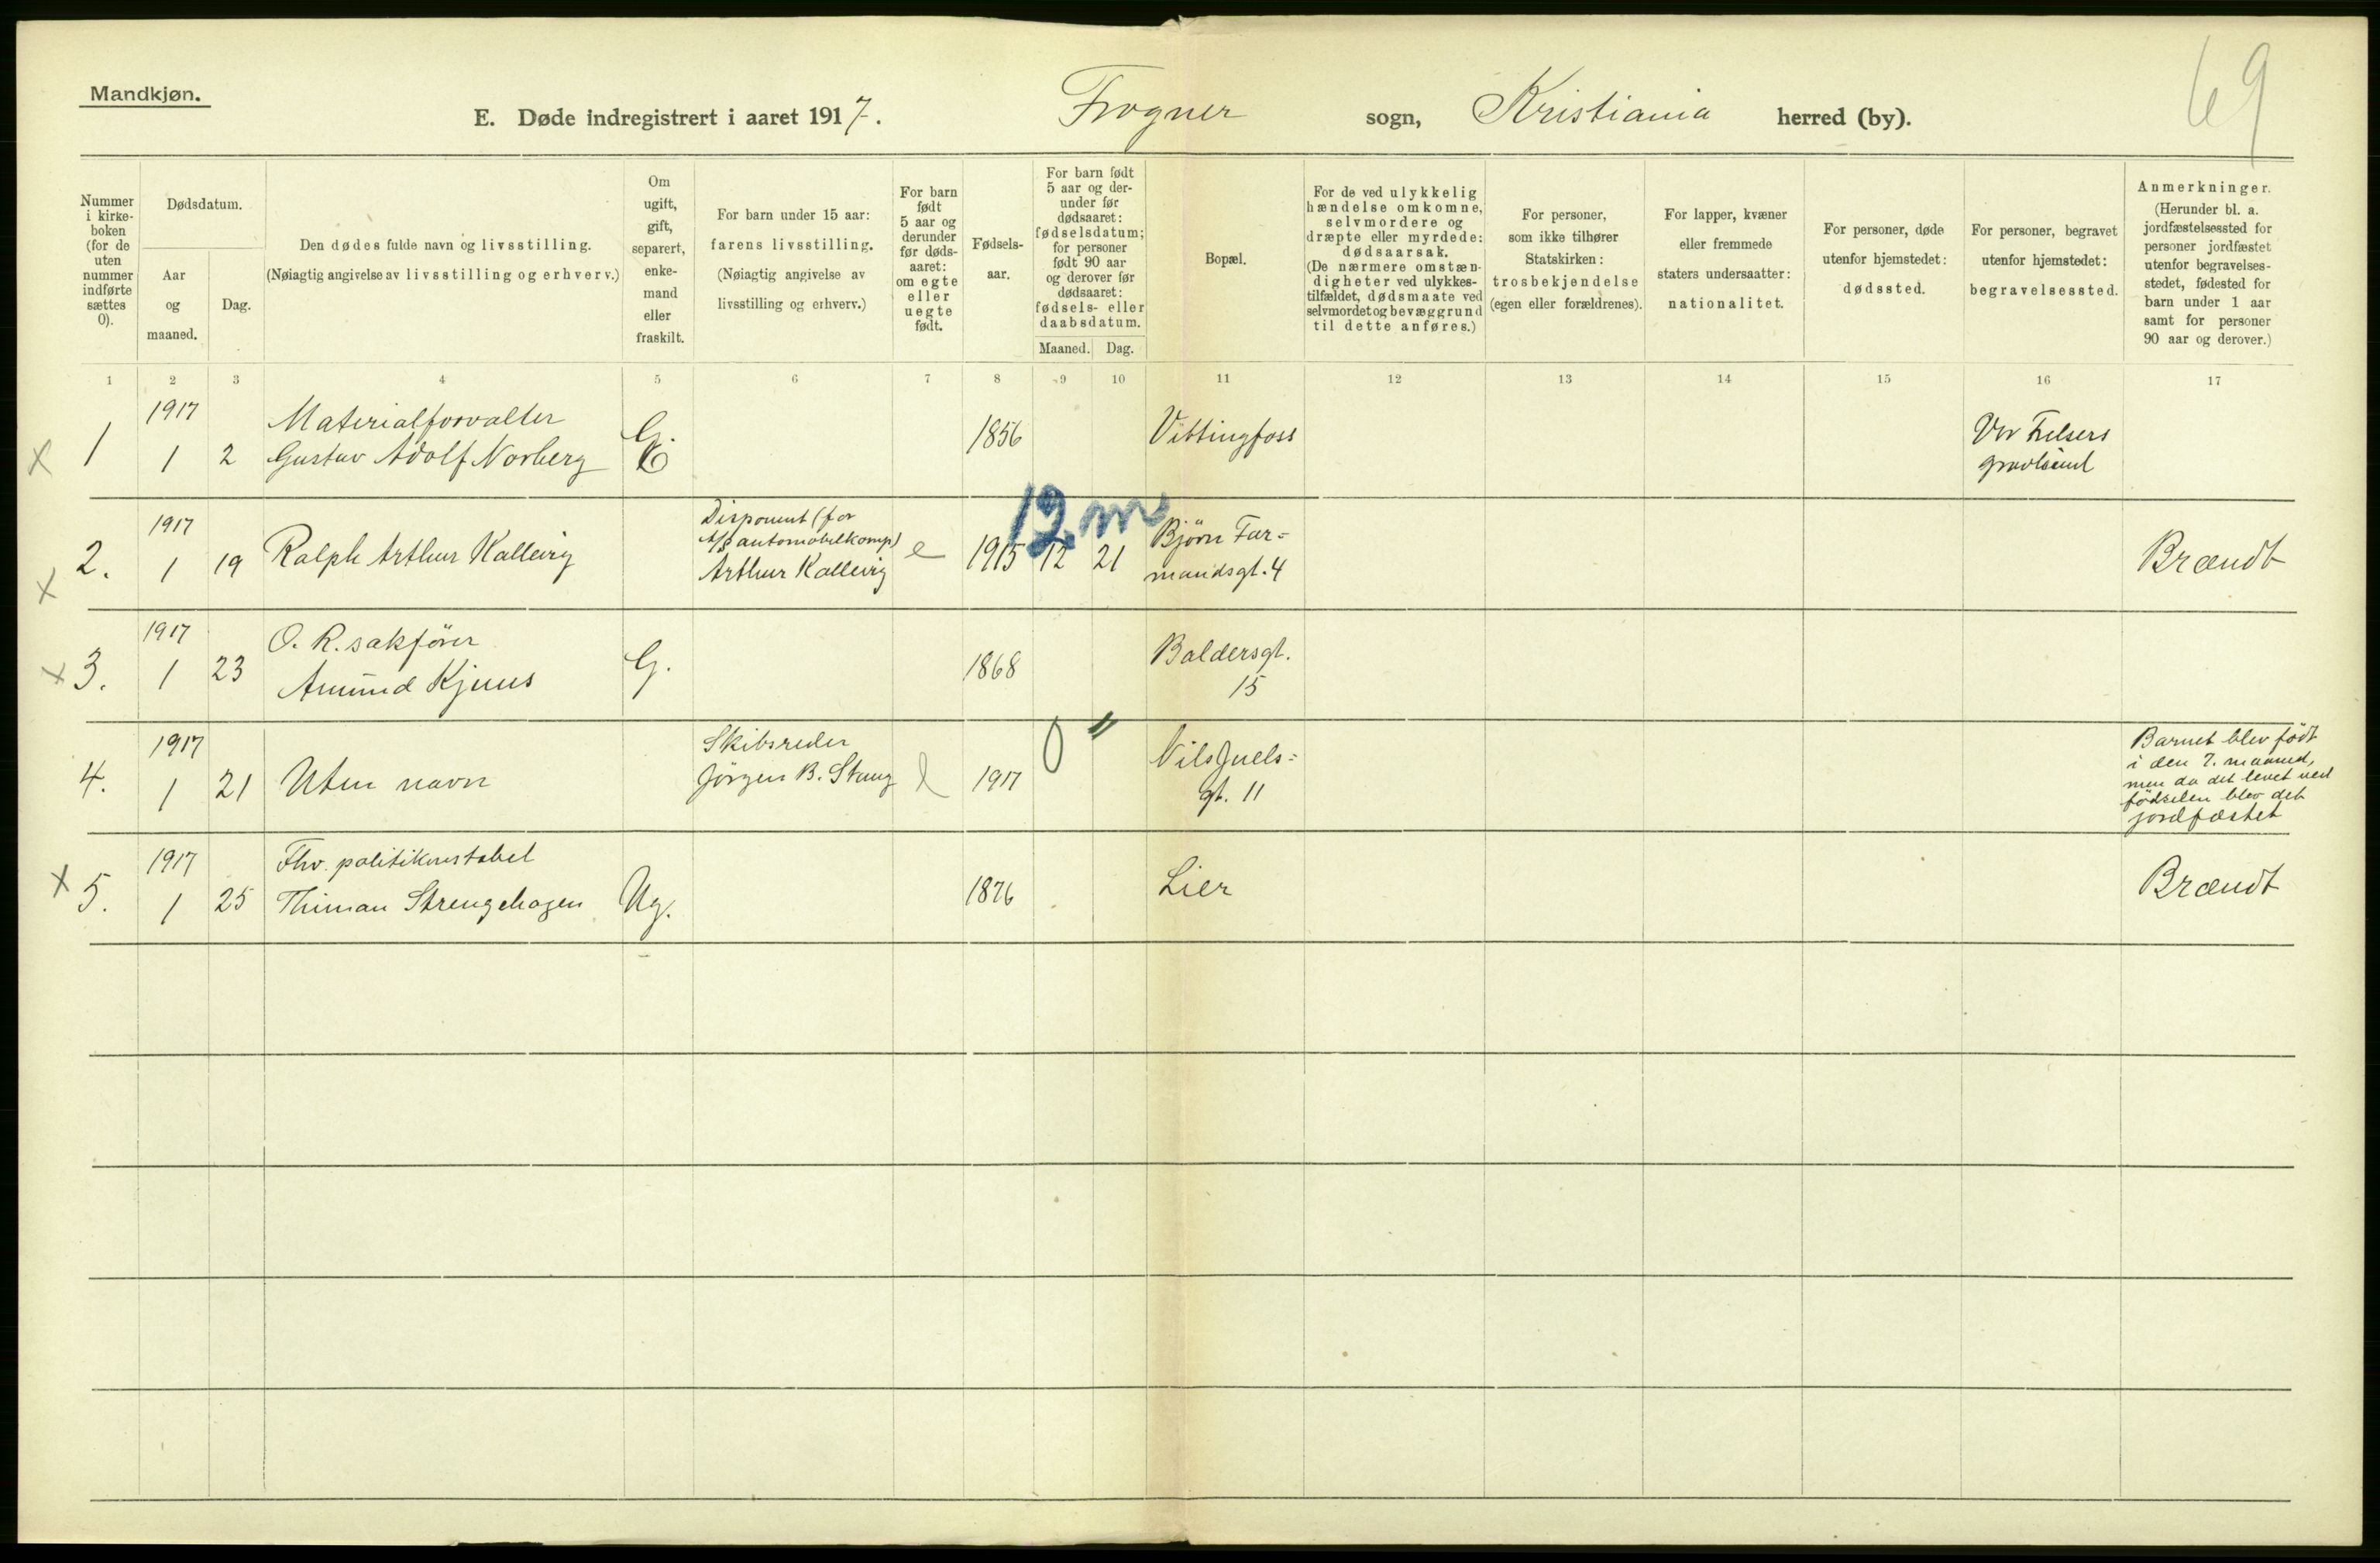 Mandkjøn.
69
E. Døde indregistrert i aaret 1917. Frogner sogn, Kristiania herred (by).
Nummer
i kirke-
boken
(for de
uten
nummer
indførte
sættes
0).
Dødsdatum.
Aar
og
maaned.
Dag.
Den dødes fulde navn og livsstilling.
(Nøiagtig angivelse av livsstilling og erhverv.)
Om
ugift,
gift,
separert,
enke-
mand
eller
fraskilt.
For barn under 15 aar:
farens livsstilling.
(Nøiagtig angivelse av
livsstilling og erhverv.)
For barn
født
5 aar og
derunder
før døds-
aaret:
om egte
eller
uegte
født.
Fødsels-
aar.
For barn født
5 aar og der-
under før
dødsaaret:
fødselsdatum;
for personer
født 90 aar
og derover før
dødsaaret:
fødsels- eller
daabsdatum.
Maaned. Dag.
Bopæl.
For de ved ulykkelig
hændelse omkomne,
selvmordere og
dræpte eller myrdede:
dødsaarsak.
(De nærmere omstæn-
digheter ved ulykkes-
tilfældet, dødsmaate ved
selvmordet og bevæggrund
til dette anføres.)
For personer,
som ikke tilhører
Statskirken:
trosbekjendelse
(egen eller forældrenes).
For lapper, kvæner
eller fremmede
staters undersaatter:
nationalitet.
For personer, døde
utenfor hjemstedet:
dødssted.
For personer, begravet
utenfor hjemstedet:
begravelsessted.
Anmerkninger.
(Herunder bl. a.
jordfæstelsessted for
personer jordfæstet
utenfor begravelses-
stedet, fødested for
barn under 1 aar
samt for personer
90 aar og derover.)
1 2 3 4 5 6 7 8 9 10 11 12 13 14 15 16 17
x 1
1917
1 2
Materialforvalter
Gustav Adolf Norberg
G.
1856
Vittingfoss
Vor Frelsers
gravlund
x 2.
1917
1 19
Ralph Arthur Kallevig
Disponent (for
A/S automobilkomp)
Arthur Kallevig
e
1915 12 21
12 m
Bjørn Far=
mandsgt. 4
Brændt
x 3.
1917
1 23
O. R. sakfører
Amund Kjuus
G.
1868
Baldersgt.
15
4.
1917
1 21
Uten navn
Skibsreder
Jørgen B. Stang
e
1917
0 "
Nils Juels=
gt. 11
Barnet blev født
i den 7. maaned,
men da det levet ved
fødselen blev det
jordfæstet
x 5.
1917
1 25
Fhv. politikonstabel
Thiman Strengehagen
Ug.
1876
Lier
Brændt